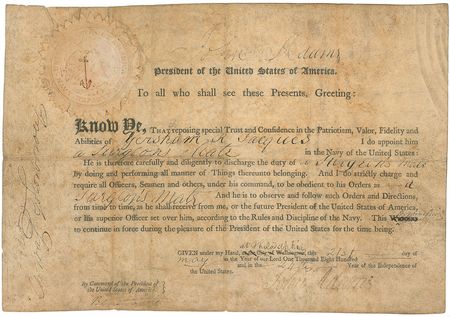 Adams
President of the United States of America.
To all who shall see these Presents, Greeting:
Know Ye, THAT reposing special Trust and Confidence in the Patriotism, Valor, Fidelity and
Abilities of Gershom R Jacques I do appoint him
a Surgeons Mate in the Navy of the United States:
He is therefore carefully and diligently to discharge the duty of a Surgeons Mate
by doing and performing all manner of Things thereunto belonging. And I do strictly charge and
require all Officers, Seamen and others, under his command, to be obedient to his Orders as a
Surgeons Mate And he is to observe and follow such Orders and Directions,
from time to time, as he shall receive from me, or the future President of the United States of America,
or his superior Officer set over him, according to the Rules and Discipline of the Navy. This
to continue in force during the pleasure of the President of the United States for the time being.
at Philadelphia
GIVEN under my Hand, in the City of Washington, this 21st day of
May in the Year of our Lord One Thousand Eight Hundred
and in the Year of the Independence of
the United States.
By Command of the President of
the United States of America.